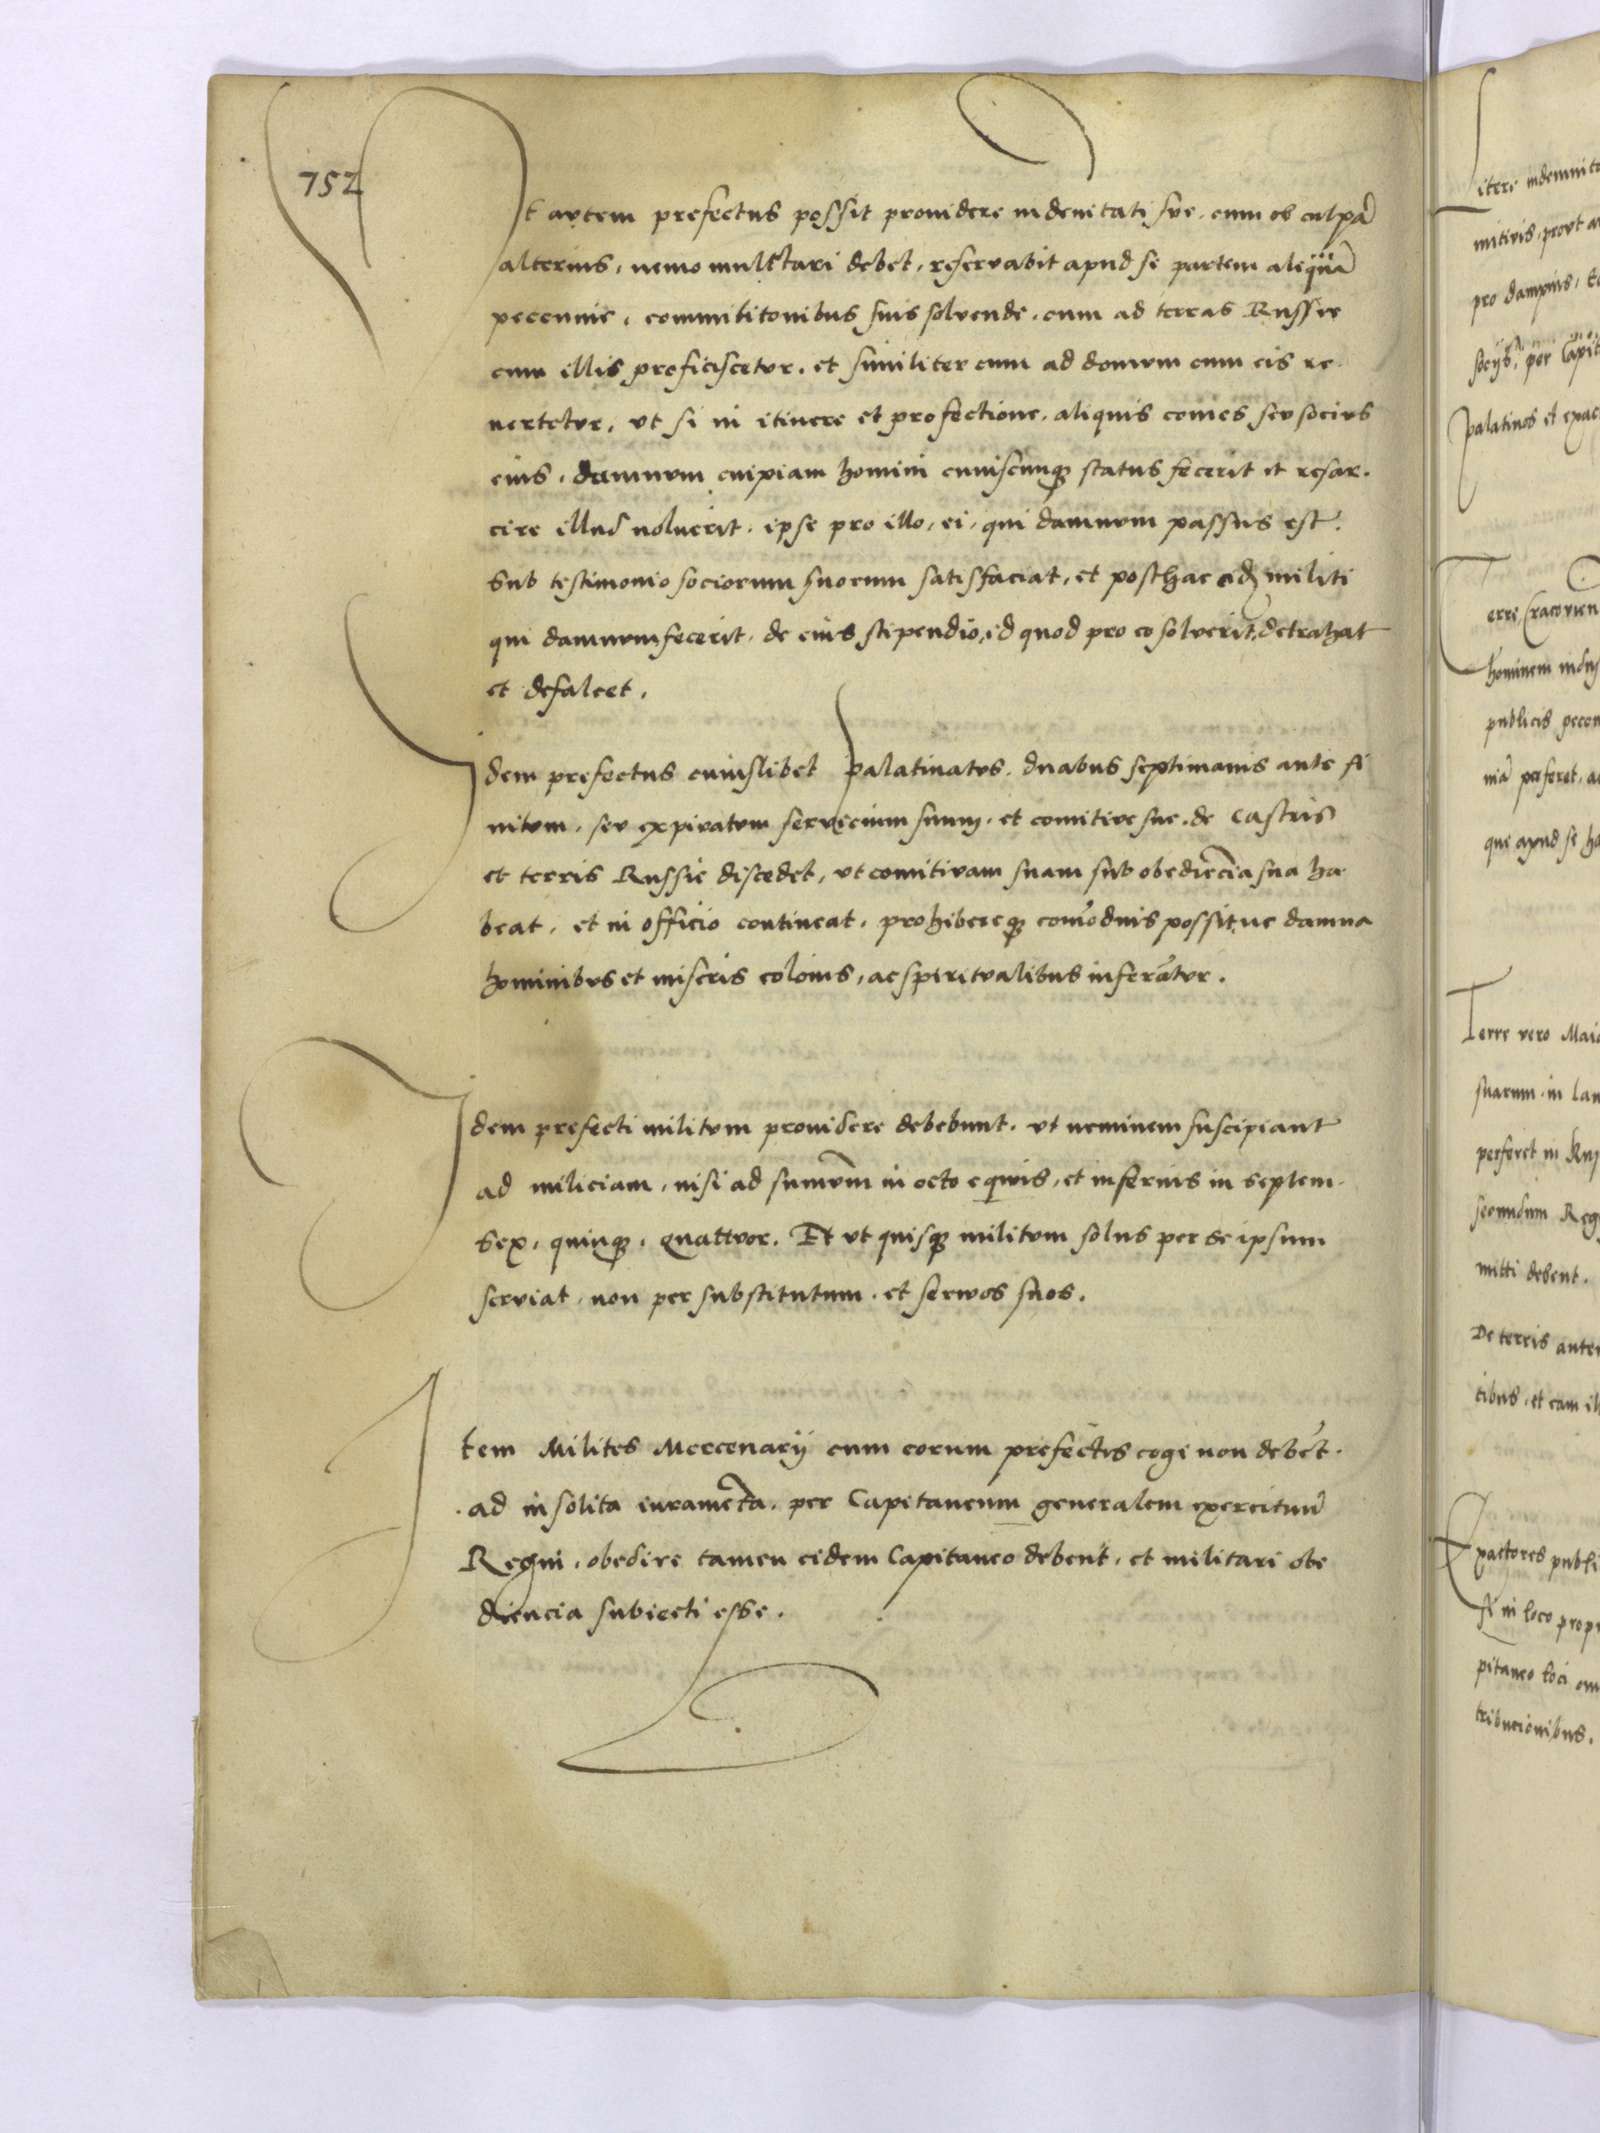 752
Ut avtem prefectus possit providere indenitati sve. cum ob culpā
alterius, nemo mulctari debet, reservabit apud se partem aliquā
peccunie, commilitonibus suis solvende. cum ad terras Russie
cum illis proficiscetvr. et similiter cum ad domvm cum eis re
vertetvr, vt si in itinere et profectione. aliquis comes sev socivs
eius, damnvm cuipiam homini cuiuscunqz status fecerit et resar.
cire illud noluerit. ipse pro illo, ei, qui damnvm passus est.
Sub testimonio sociorum suorum satisfaciat, et posthac militi
qui damnvm fecerit. de eius stipendio, id quod pro eo solverit, detrahat
et defalcet.
Idem prefectus cuiuslibet Palatinatvs. duabus septimanis ante fi
nitvm, sev expiratvm servicium suum. et comitive sue. de Castris
et terris Russie discedet, vt comitivam suam sub obediēcia sua ha
beat, et in officio contineat, prohibereqz comōdius possit, ne damna
hominibvs et miseris colonis, ac spiritvalibus inferātvr.
Idem prefecti militvm providere debebunt. vt neminem suscipiant
ad miliciam, nisi ad sumvm̄ in octo equis, et inferius in septem.
Sex, quinqz, quattvor. Et vt quisqz militvm solus per se ipsum
serviat, non per substitutum. et servos suos.
Item Milites Mercenarij cum eorum prefectis cogi non debēt.
ad insolita iuramēta. per Capitaneum generalem exercituū
Regni, obedire tamen eidem Capitaneo debent, et militari obe
diencia subiecti esse.
itere indemnita
mitivis, provt a
pro dampnis,
per Capit
Palatinos et exac
Terre Cracovien
hominem
publicis pecun
niā perferet, a
que apud se ha
Terre vero Maio
suarum. in
perferet in
secundum Reg
mitti debent.
De terris autem
cibus, et cum
Exactores publi
si in loco propr
pitaneo loci
tribucionibus.